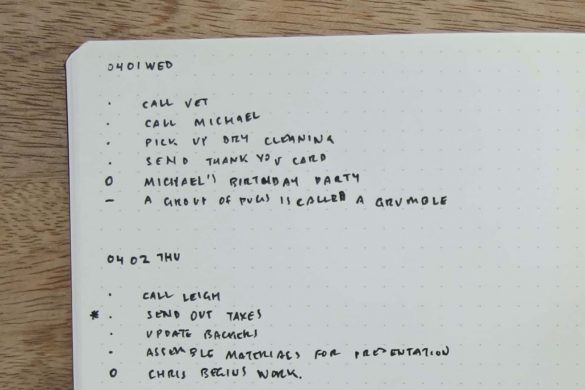 04 01 WED
· CALL VET
· CALL MICHAEL
· PICK UP DRY CLEANING
· SEND THANK YOU CARD
O MICHAEL'S BIRTHDAY PARTY
– A GROUP OF PUGS IS CALLED A GRUMBLE
04 02 THU
· CALL LEIGH
* · SEND OUT TAXES
· UPDATE BACKERS
· ASSEMBLE MATERIALS FOR PRESENTATION
O CHRIS BEGINS WORK.